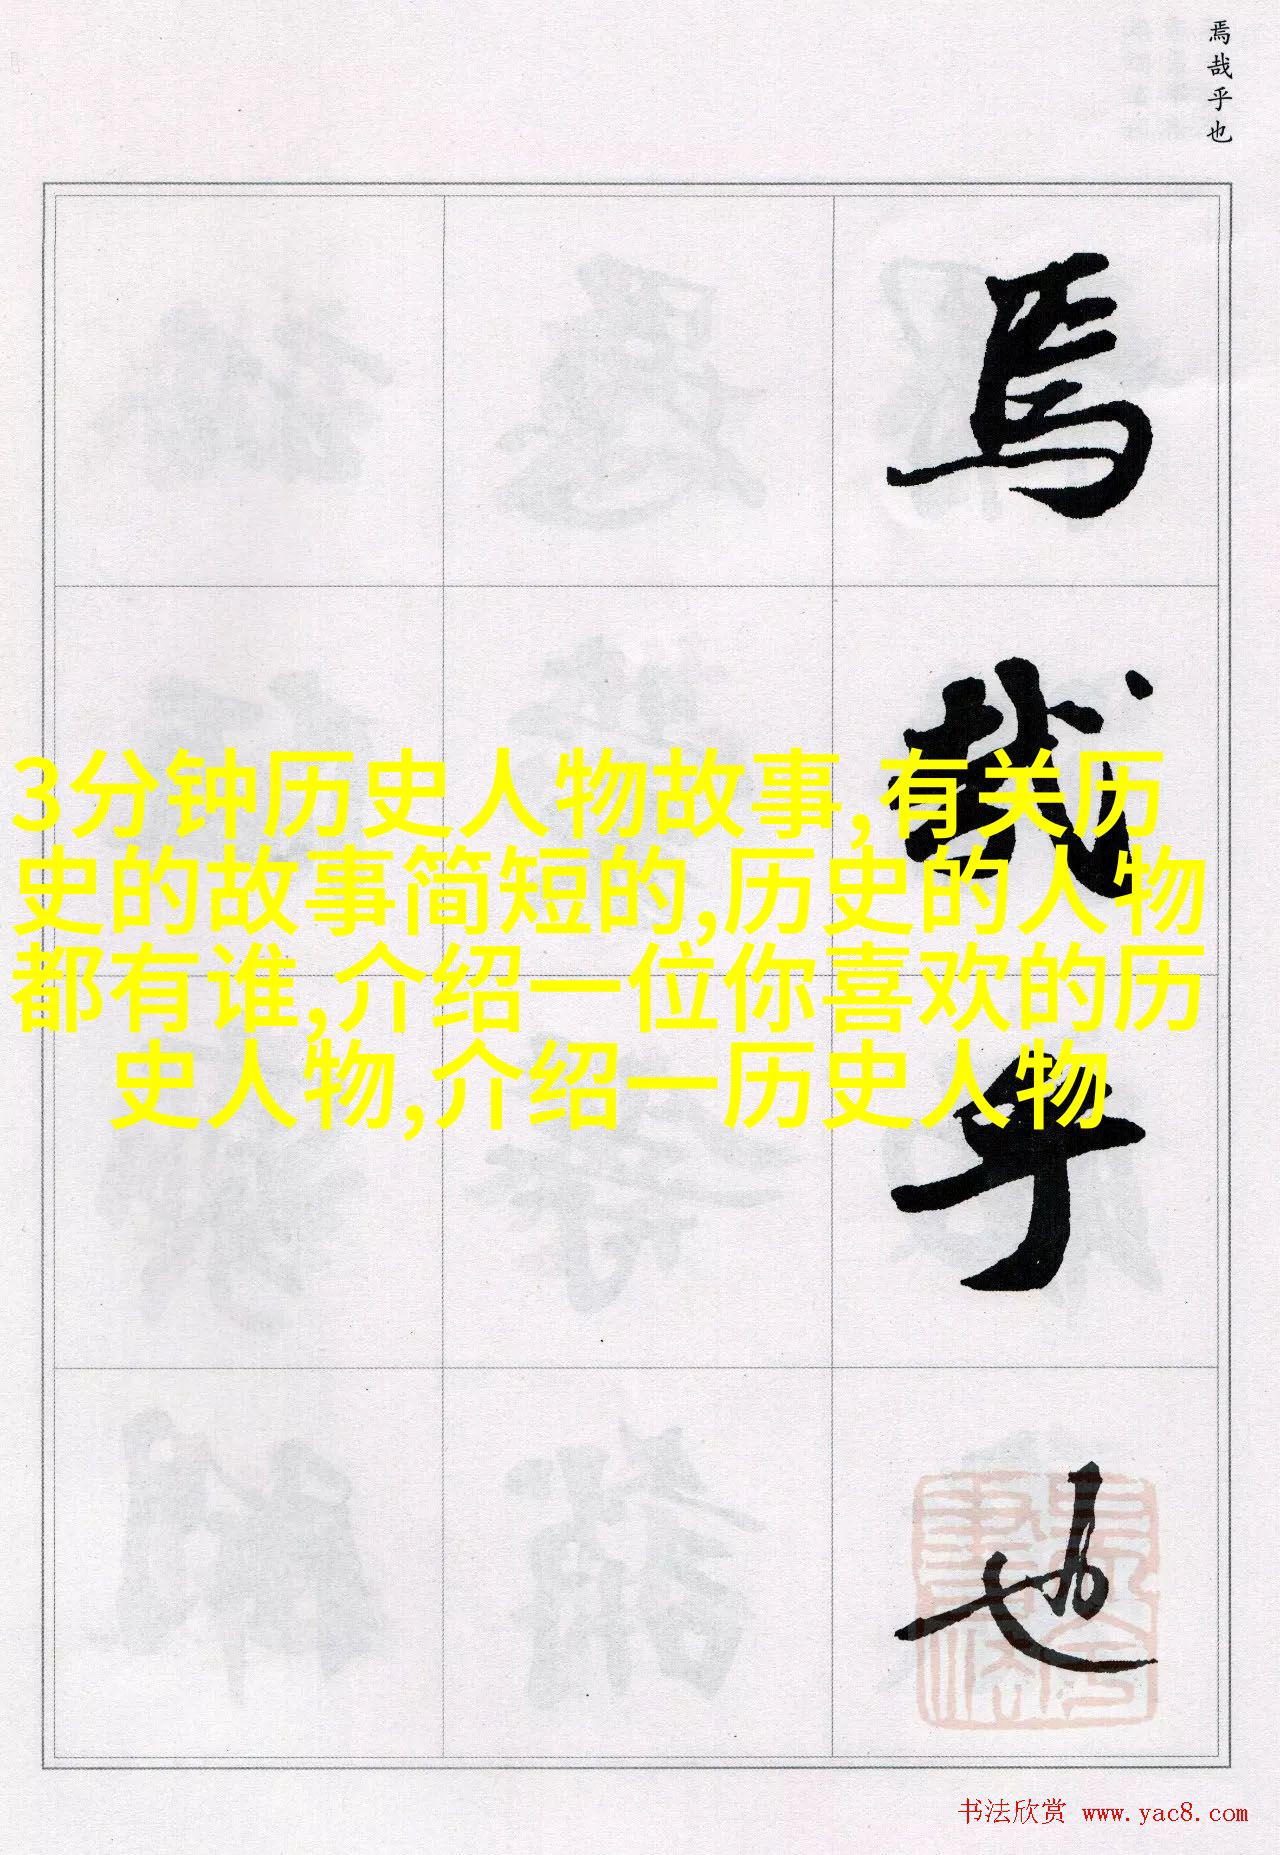 焉哉乎也
焉
哉
乎
也
3分钟历史人物故事,有关历
史的故事简短的,历史的人物
都有谁,介绍一位你喜欢的历
史人物,介绍一历史人物
书法欣赏 www.yac8.com